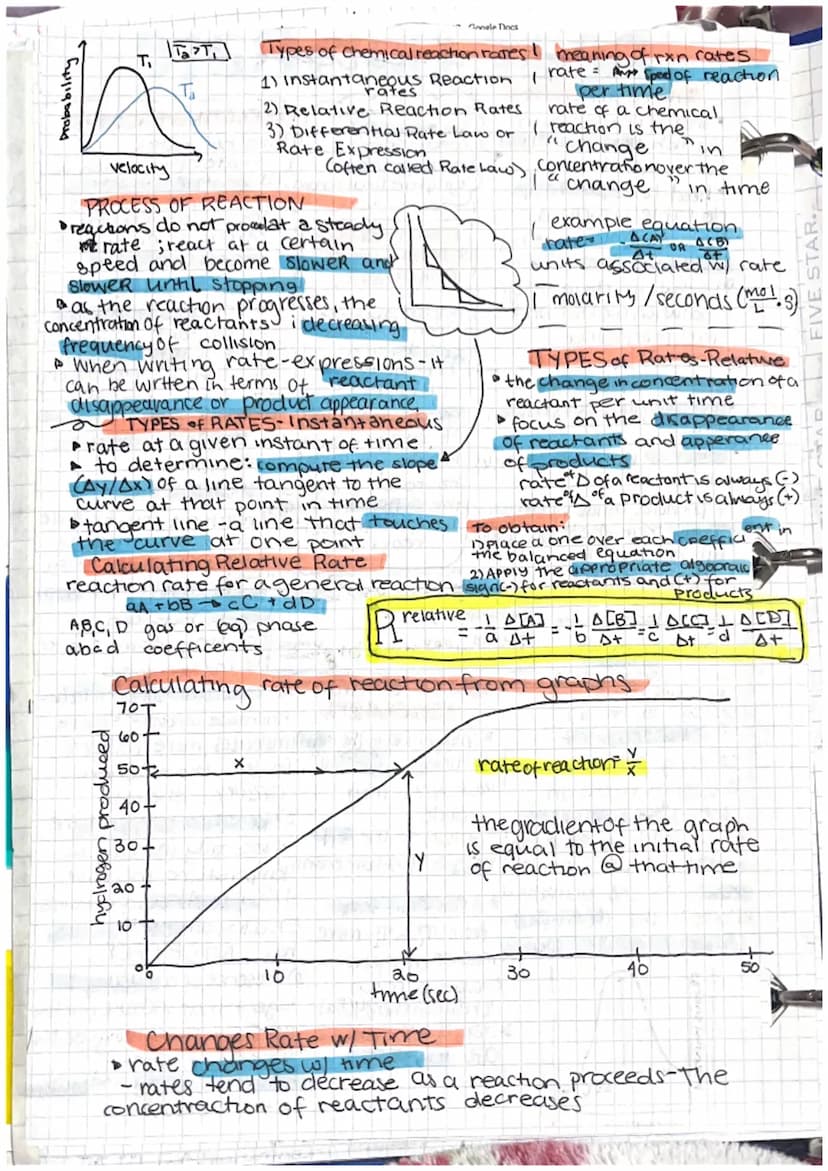 Google Docs
Probability
T₁
T₂>T₁
T₂
Velocity
Types of Chemical reaction rates
1) Instantaneous Reaction
rates
2) Relative Reaction Rates
3) Differential Rate Law or
Rate Expression
(often called Rate Law)
meaning of rxn rates
rate = speed of reaction
per time
rate of a chemical
reaction is the
"change" in
concentration over the
"change" in time
example equation
rate= -Δ(A)/Δt OR Δ(B)/Δt
units associated w/ rate
molarity/seconds (mol/L·s)
PROCESS OF REACTION
reactions do not procedat a steady
rate ; react at a certain
speed and become slower and
slower until stopping
as the reaction progresses, the
concentration of reactants ↓ decreasing
frequency of collision
When writing rate-expressions-it
can be wrtten in terms of reactant
disappearance or product appearance
TYPES of RATES-Instantaneous
rate at a given instant of time
to determine: compute the slope
(Δy/Δx) of a line tangent to the
curve at that point in time
tangent line -a line that touches
the curve at one point
TYPES of Rates-Relative
the change in concentration of a
reactant per unit time
focus on the disappearance
of reactants and apperance
of products
rate of Δ of a reactant is always (-)
rate of Δ of a product is always (+)
To obtain:
1) place a one over each coefficient in
the balanced equation
2) APPLY the appropriate algebraic
sign(-) for reactants and (+) for
products
Calculating Relative Rate
reaction rate for a general reaction
aA + bB → cC + dD
A,B,C, D gas or (aq) phase
abcd coefficents
R relative = -1/a Δ[A]/Δt = -1/b Δ[B]/Δt = 1/c Δ[C]/Δt = 1/d Δ[D]/Δt
Calculating rate of reaction from graphs
hydrogen produced
70
60
50
40
30
20
10
0
x
y
rate of reaction= y/x
the gradient of the graph
is equal to the initial rate
of reaction @ that time
0 10 20 30 40 50
time (sec)
Changes Rate w/ Time
rate changes w/ time
- rates tend to decrease as a reaction proceeds-The
concentraction of reactants decreases
FIVE STAR.